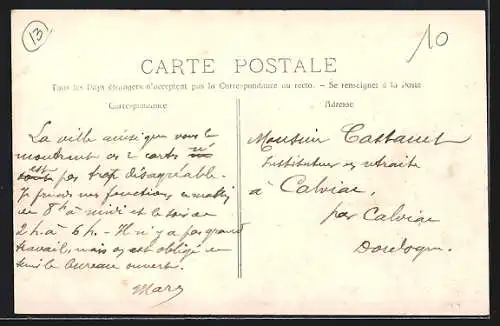 13
10
CARTE POSTALE
Tous les Pays étrangers n'acceptent pas la Correspondance au recto. - Se renseigner à la Poste
Correspondance
Adresse
La ville ainsi que vous le
montrent ces 2 cartes
est pas trop désagréable.
Je prends mes fonctions le matin
de 8h à midi et le soir de
2h. à 6h. - Il n'y a pas grand
travail, mais on est obligé de
tenir le bureau ouvert.
Monsieur Castanet
Instituteur en retraite
à Calviac,
par Calviac
Dordogne.